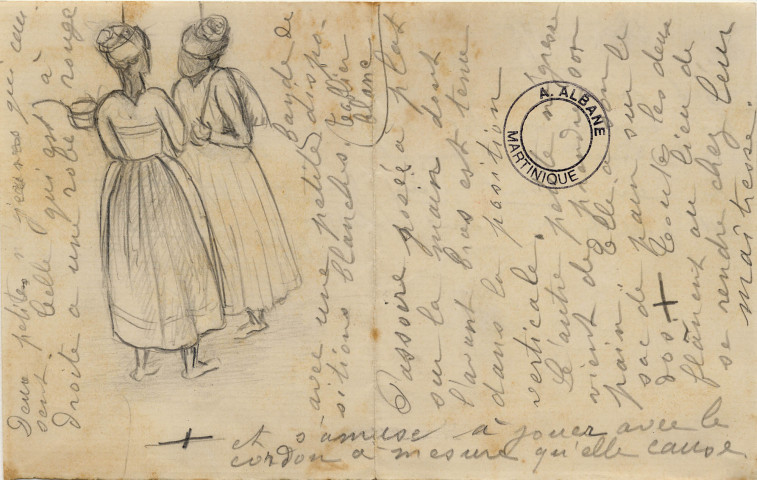 Deux petites négresses qui cau-
sent. Celle qui est à
droite a une robe rouge
avec une petite bande de
sitions blanches. tablier
blanc
Passoire posée à plat
sur la main dont
l'avant bras est tenu
dans la position
verticale.
L'autre petite négresse
vient de prendre son
pain. Elle a son
sac de pain sur le
dos + toutes les deux
flânent au lieu de
se rendre chez leur
maîtresse.
+ et s'amuse à jouer avec le
cordon à mesure qu'elle cause
A. ALBANE
MARTINIQUE